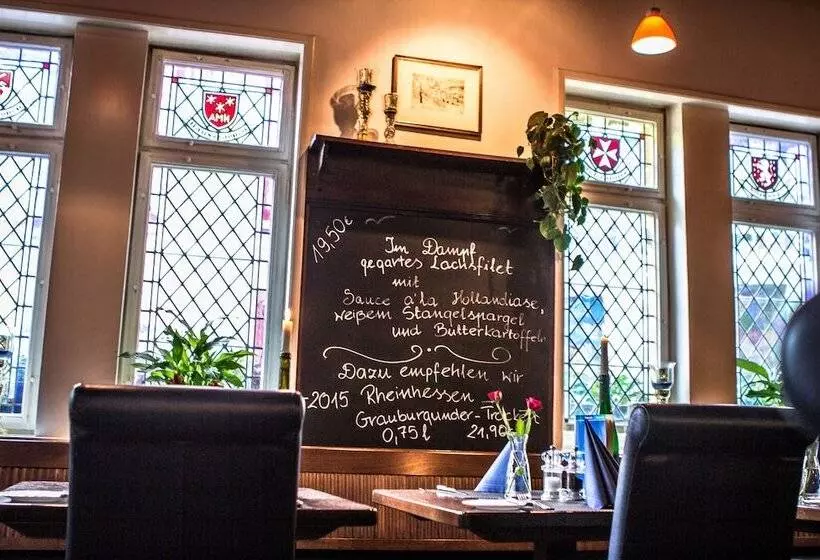 19,50€
Im Dampf
gegartes Lachsfilet
mit
Sauce à la Hollandiase,
weißem Stangelspargel
und Butterkartoffeln
Dazu empfehlen wir
2015 Rheinhessen
Grauburgunder-Trocken
0,75l 21,90€
AMH